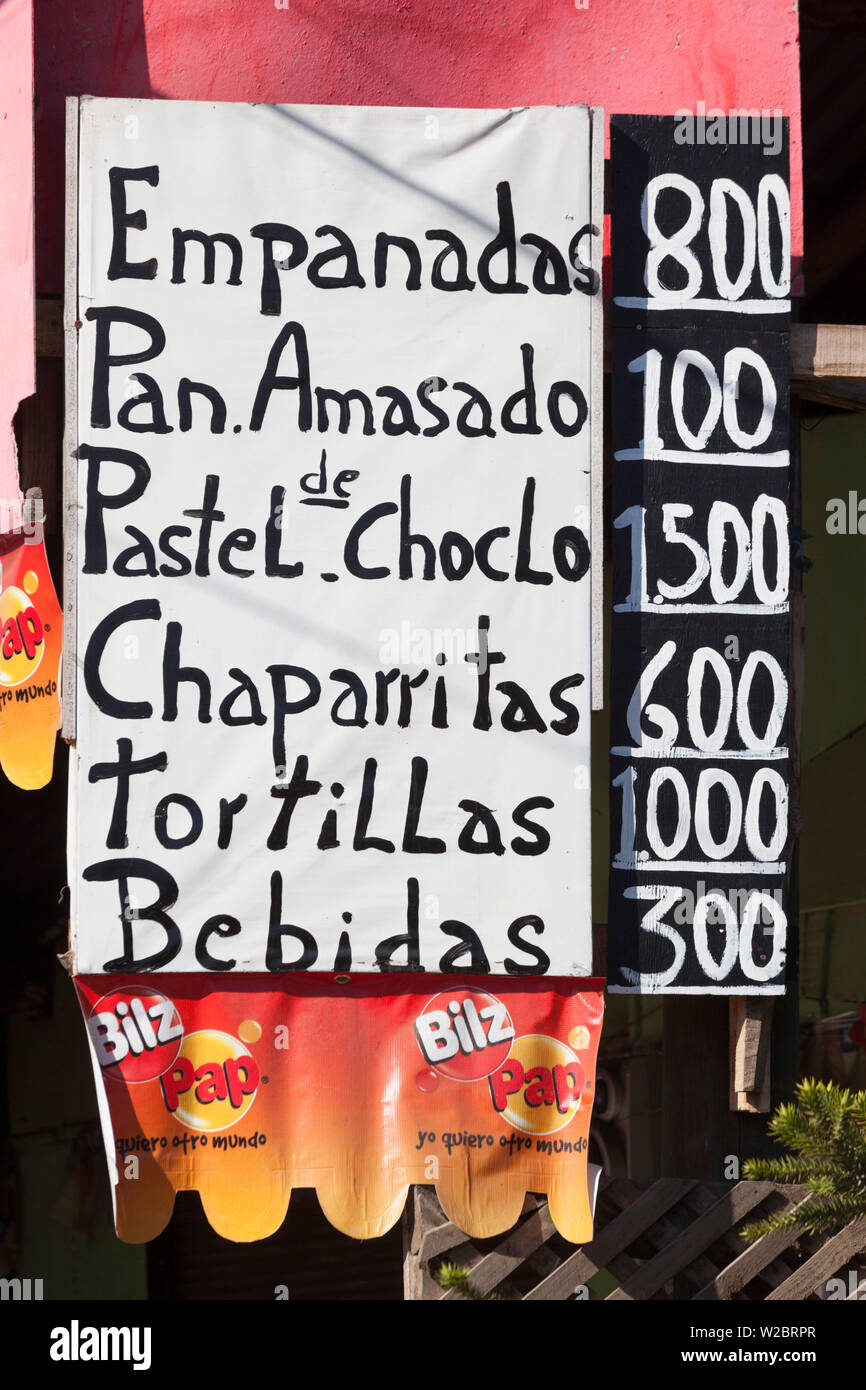 Empanadas 800
Pan. Amasado 100
Pastel de Choclo 1.500
Chaparritas 600
Tortillas 1.000
Bebidas 300
Pap
tro mundo
Bilz Pap
quiero otro mundo
Bilz Pap
yo quiero otro mundo
a
alamy
Image ID: W2BRPR
www.alamy.com